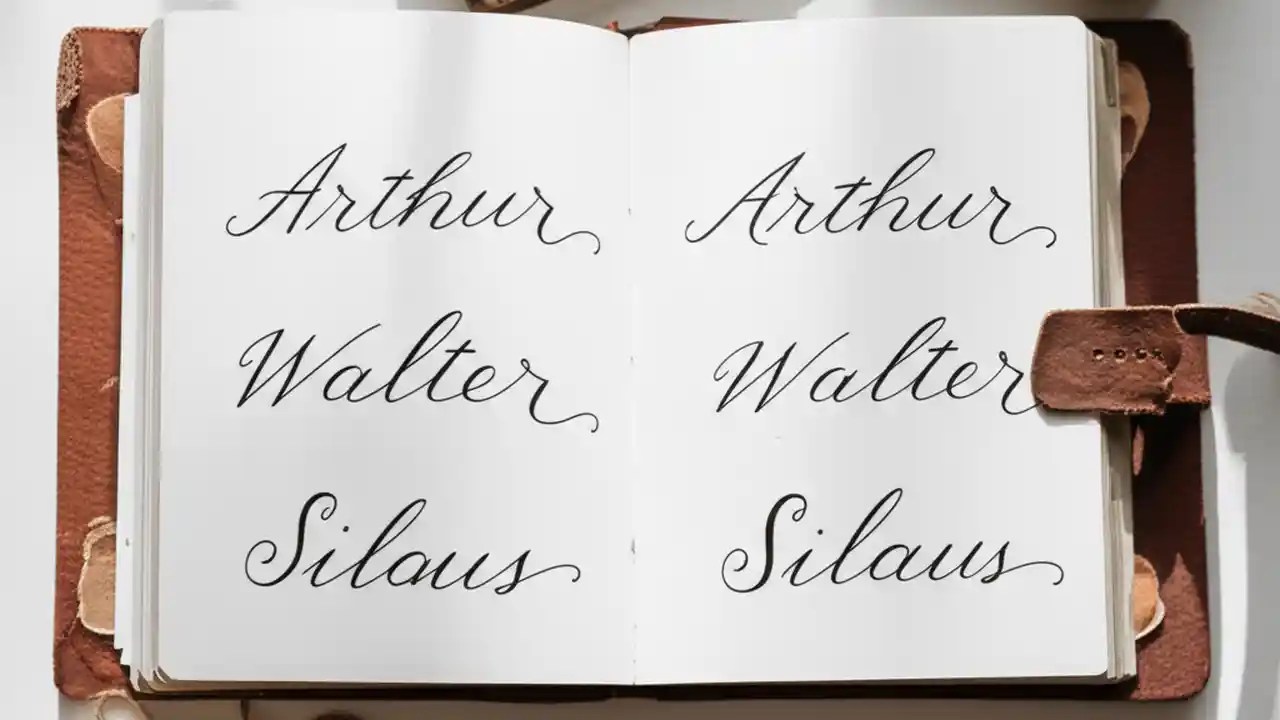 Arthur
Walter
Silaus
Arthur
Walter
Silaus